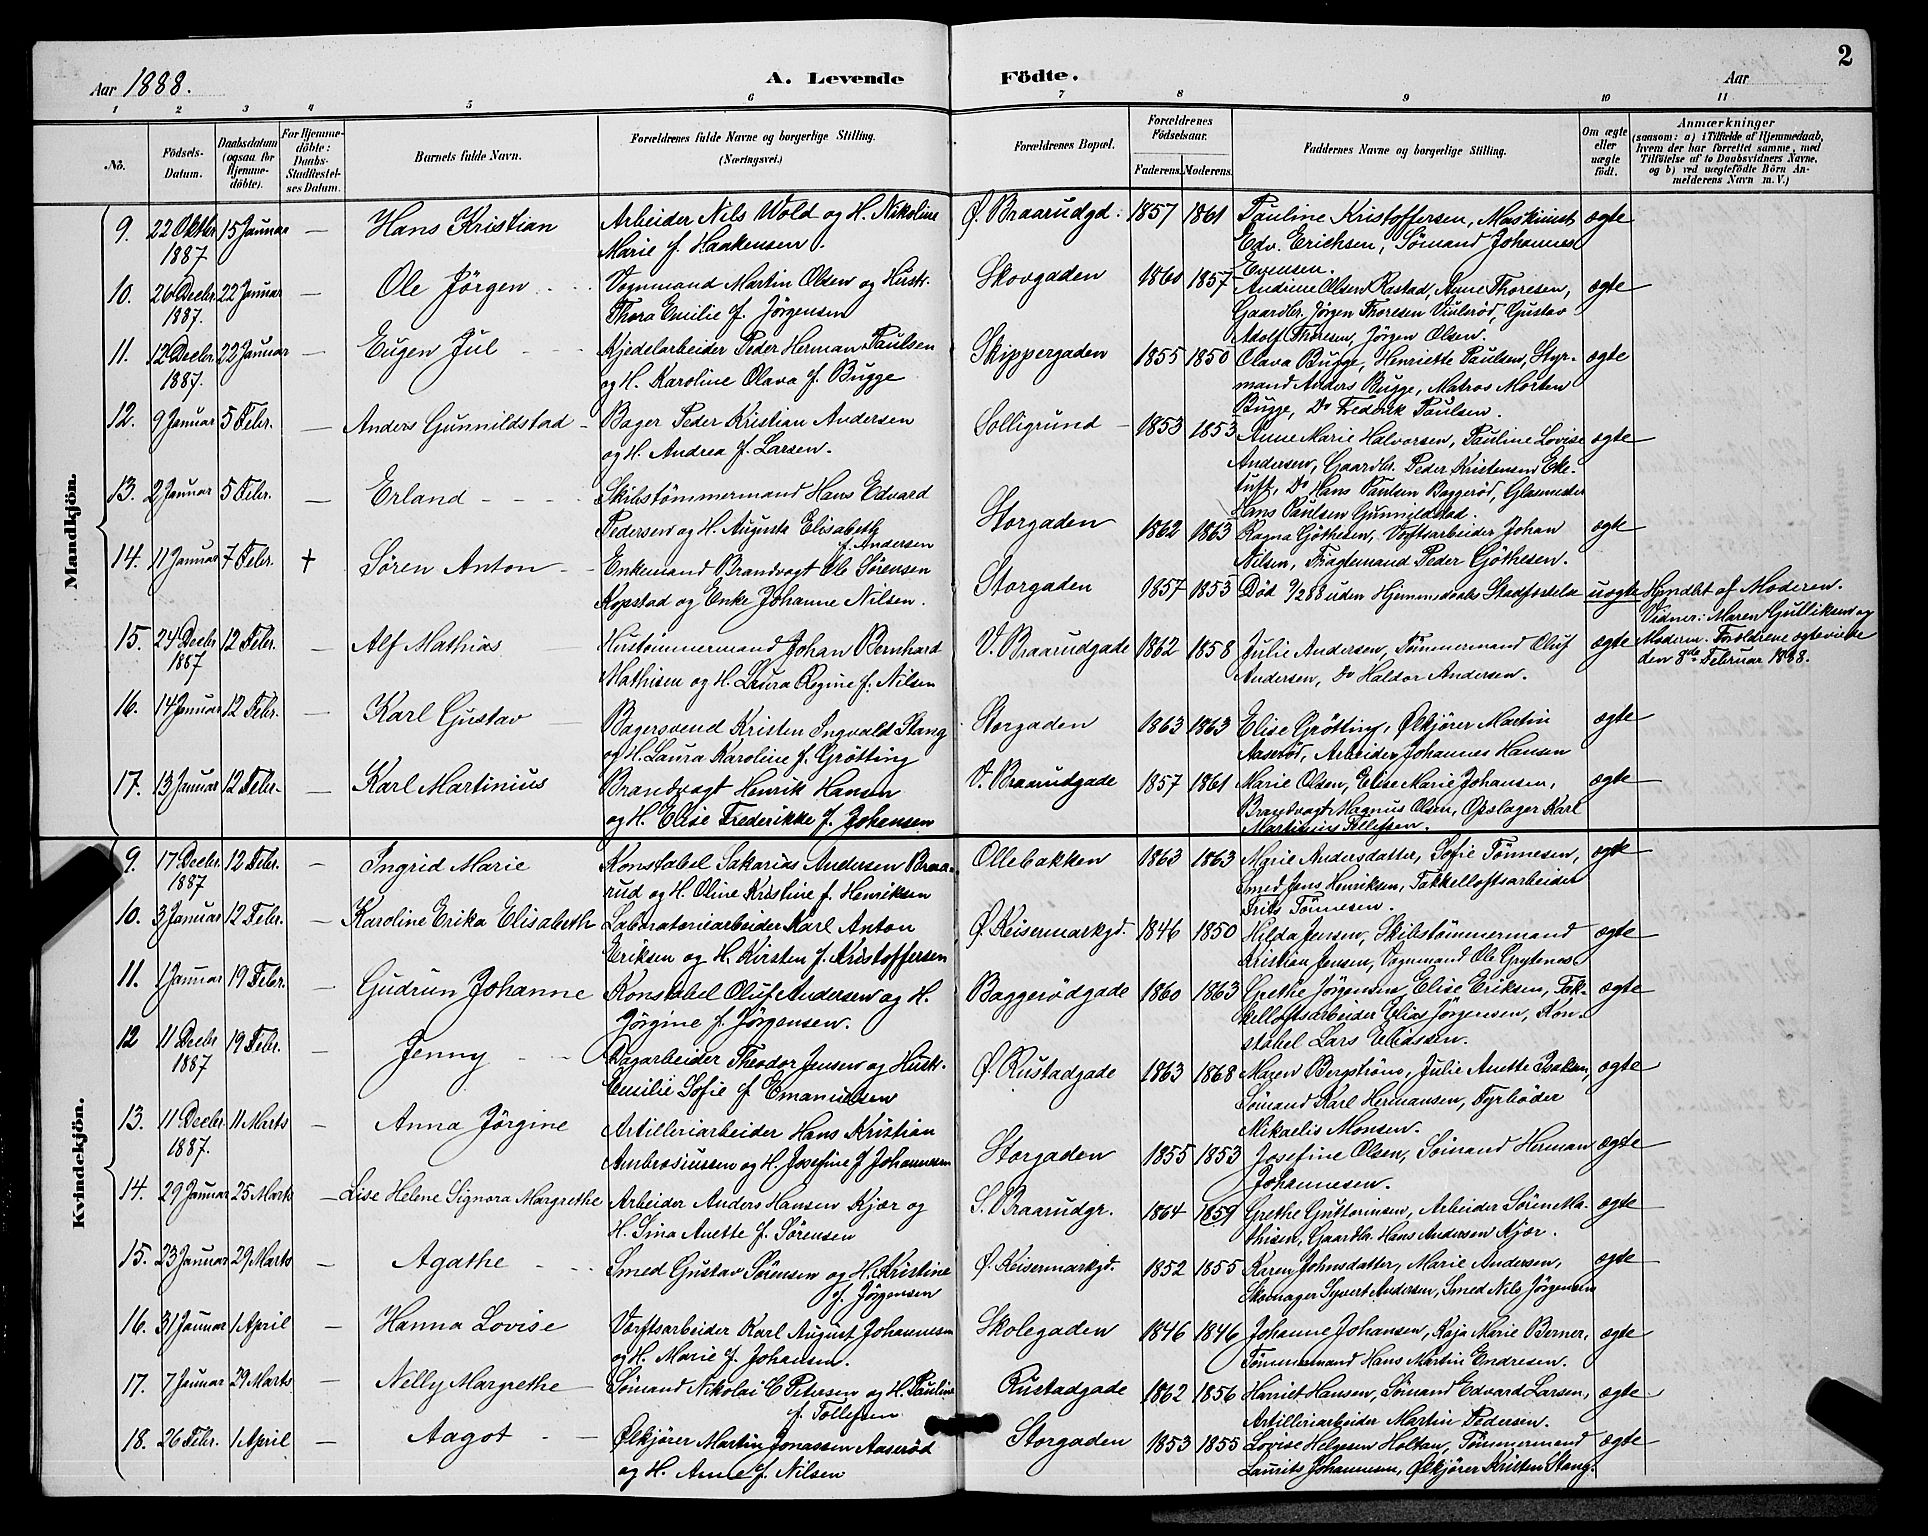 Aar 1888. A. Levende Födte. Aar 2
1 2 3 4 5 6 7 8 9 10 11
No. Födsels-Datum. Daabsdatum (ogsaa for Hjemme-döbte). For Hjemme-döbte: Daabs-Stadfæstel-ses Datum. Barnets fulde Navn. Forældrenes fulde Navne og borgerlige Stilling. (Næringsvei.) Forældrenes Bopæl. Forældrenes Födselsaar. Faderens. Moderens. Faddernes Navne og borgerlige Stilling. Om ægte eller uægte födt. Anmærkninger (saasom: a) i Tilfælde af Hjemmedaab, hvem der har forrettet samme, med Tilföielse af to Daabsvidners Navne, og b) ved uægtefödte Börn An-melderens Navn m. V.)
Mandkjön.
9. 22 Oktbr 1887 15 Januar — Hans Kristian Arbeider Nils Wold og H. Nikoline Marie f. Haakensen. Ø. Braarudgd: 1857 1861 Pauline Kristoffersen, Maskinist Edv. Erichsen, Sömand Johannes Evensen. ægte
10. 26 Decbr 1887. 22 Januar — Ole Jörgen Vognmand Martin Olsen og Hustr. Thora Emilie f. Jörgensen Skovgaden 1860 1857 Andrine Olsen Rastad, Anne Thoresen, Gaardbr. Jörgen Thoresen Viulsröd, Gustav Adolf Thoresen, Jörgen Olsen. ægte
11. 12 Decbr 1887. 22 Januar — Eugen Jul Kjedelarbeider Peder Herman Paulsen og H. Karoline Olava f. Bugge Skippergaden 1855 1850 Olava Bugge, Henriette Paulsen, Styr-mand Anders Bugge, Matros Morten Bugge, Do Frederik Paulsen. ægte
12. 9 Januar 5 Febr. — Anders Gunnildstad Bager Peder Kristian Andersen og H. Andrea f. Larsen. Solligrund 1853 1853 Anne Marie Halvorsen, Pauline Lovise Andersen, Gaardbr. Peder Kristensen Eke-tuft, Do Hans Paulsen Baggeröd, Glasmester Hans Paulsen Gunnildstad. ægte
13. 2 Januar 5 Febr. — Erland Skibstömmermand Hans Edvard Pedersen og H. Augusta Elisabeth f. Andersen Storgaden 1862 1863 Ragna Göthesen, Værftsarbeider Johan Nilsen, Fragtemand Peder Göthesen. ægte
14. 11 Januar 7 Febr. + Sören Anton Enkemand Brandvagt Ole Sörensen Kopstad og Enke Johanne Nilsen. Storgaden 1857 1853 Död 9/2 88 uden Hjemmedaabs Stadfæstelse uægte Hjmdbt af Moderen. Vidner: Maren Gulliksen og Modern. Forældrene ægteviede den 8de Februar 1888.
15. 24 Decbr 1887 12 Febr. — Alf Mathias Hustömmermand Johan Bernhard Mathisen og H. Laura Regine f. Nilsen V. Braarudgade 1862 1858 Julie Andersen, Tömmermand Oluf Andersen, Do Haldor Andersen. ægte
16. 14 Januar 12 Febr. — Karl Gustav Bagersvend Kristen Ingvald Stang og H. Laura Karoline f. Grötting Storgaden 1863 1863 Elise Grötting, Ølkjörer Martin Aaseröd, Arbeider Johannes Hansen ægte
17. 13 Januar 12 Febr. — Karl Martinius Brandvagt Henrik Hansen og H. Elise Frederikke f. Johansen V. Braarudgade 1857 1861 Marie Olsen, Elise Marie Johansen, Brandvagt Magnus Olsen, Opslager Karl Martinius Tollefsen. ægte
Kvindekjön.
9. 17 Decbr 1887 12 Febr. — Ingrid Marie Konstabel Sakarias Andersen Braa-rud og H. Oline Kristine f. Henriksen Ollebakken 1863 1863 Marie Andersdatter, Sofie Tönnesen, Smed Jens Henriksen, Takkelloftsarbeider Frits Tönnesen. ægte
10. 3 Januar 12 Febr. — Karoline Erika Elisabeth Laboratoriearbeider Karl Anton Eriksen og H. Kirsten f. Kristoffersen Ø. Keisermarkgd. 1846 1850 Hilda Jensen, Skibstömmermand Kristian Jensen, Vognmand Ole Grytenes ægte
11. 1 Januar 19 Febr. — Gudrun Johanne Konstabel Oluf Andersen og H. Jörgine f. Jörgensen. Baggerödgade 1860 1863 Grethe Jörgensen, Elise Eriksen, Tak-kelloftsarbeider Elias Jörgensen, Kon-stabel Lars Eliassen. ægte
12 11 Decbr 1887 19 Febr. — Jenny Dagarbeider Theodor Jensen og Hustr. Emilie Sofie f. Emanuelsen Ø. Rustadgade 1863 1868 Maren Bergström, Julie Anette Isaksen, Sömand Karl Hermansen, Fyrböder Mikaelis Monsen. ægte
13. 11 Decbr 1887. 11 Marts — Anna Jörgine Artilleriarbeider Hans Kristian Ambrosiussen og H. Josefine f Johannesen Storgaden 1855 1853 Josefine Olsen, Sömand Herman Johannesen. ægte
14. 29 Januar 25 Marts — Lise Helene Signora Margrethe Arbeider Anders Hansen Kjær og H. Sina Anette f. Sörensen S. Braarudgr. 1864 1859 Grethe Guttormsen, Arbeider Sören Ma-thisen, Gaardbr. Hans Andersen Kjær. ægte
15. 23 Januar 29 Marts — Agathe Smed Gustav Sörensen og H. Kristine f. Jörgensen Ø. Keisermarkgd. 1852 1855 Karen Johnsdatter, Marie Andersen, Skomager Syvert Andersen, Smed Nils Jörgensen ægte
16. 31 Januar 1 April — Hanna Lovise Værftsarbeider Karl August Johannesen og H. Marie f. Johansen. Skolegaden 1846 1846 Johanne Johansen, Kaja Marie Berner, Tömmermand Hans Martin Endresen. ægte
17. 7 Januar 29 Marts — Nelly Margrethe Sömand Nikolai C Petersen og H. Pauline f. Tollefsen Rustadgade 1862 1856 Harriet Hansen, Sömand Edvard Larsen, Artilleriarbeider Martin Pedersen. ægte
18. 26 Febr. 1 April — Aagot Ølkjörer Martin Jonassen Aaseröd og H. Anne f. Nilsen Storgaden 1853 1855 Lovise Helgesen Holtan, Tömmermand Laurits Johannesen, Ølkjörer Kristen Stang. ægte